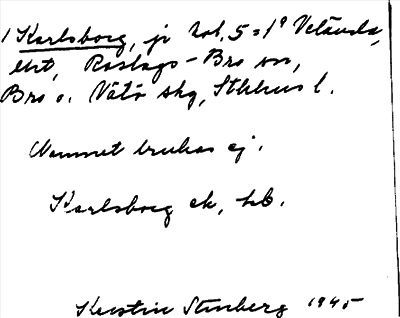 1 Karlsborg, jr hel, 5=1⁹ Velånda,
utt, Roslags-Bro sn,
Bro o. Vätö skg, Sthlms l.
Namnet brukas ej.
Karlsborg ek, hb.
Kerstin Stenberg 1945